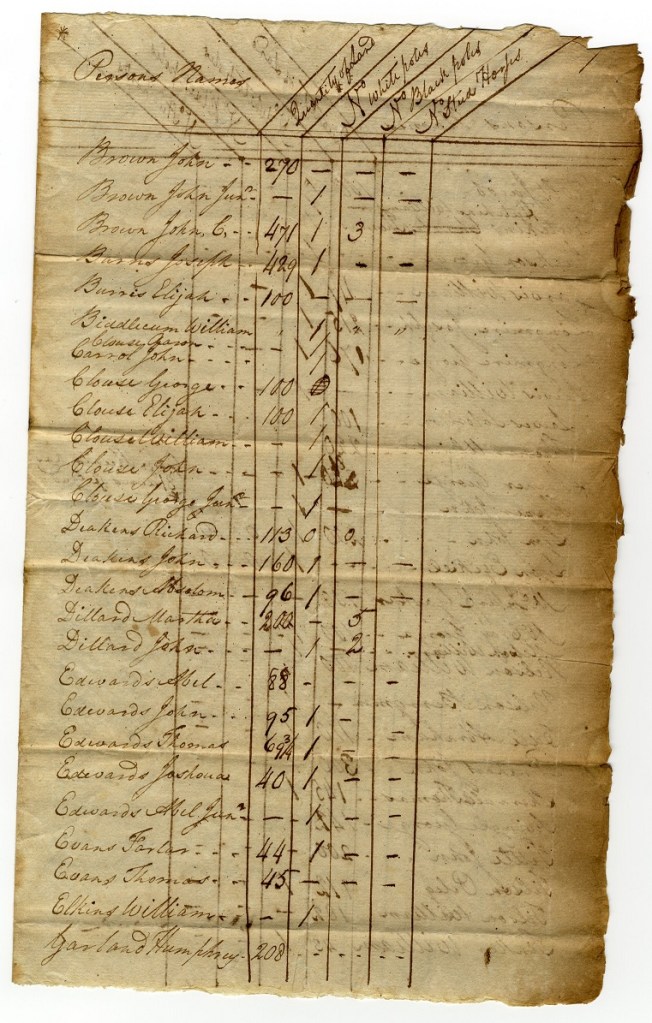 Persons Names Quantity of Land No White poles No Black poles No Stud Horses
Brown John - - 270 - - -
Brown John Junr - - 1 - -
Brown John C. - - 471 1 3 -
Burris Joseph - 429 1 - -
Burris Elijah - - 100 - - -
Biddlecum William " 1 " "
Clouse Aaron - - -
Carrol John - - - - 1
Clouse George - - 100 0 -
Clouse Elijah - - - 100 1
Clouse William - - - 1
Clouse John - - - 1
Clouse George Junr - - 1 -
Deakens Richard - - 113 0 0
Deakens John - - 160 1 - -
Deakens Absolom - 96 1 - +
Dillard Martha - 200 - 5
Dillard John - - - 1 2
Edwards Abel - - 88 - - -
Edwards John - - 95 1
Edwards Thomas 1 -
Edwards Joshoua 40 1 - -
Edwards Abel Junr - - 1 - -
Evans Farlar - - - 44 1 - -
Evans Thomas - - - 45 - - -
Elkins William - - - - 1
Garland Humphrey - 208 - - - -